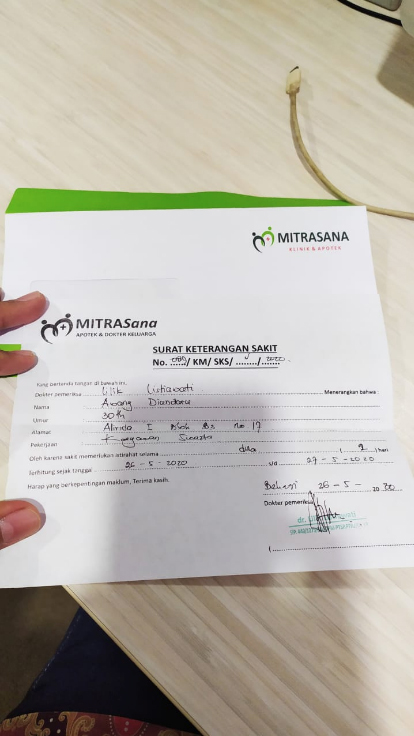 MITRASANA
KLINIK & APOTEK
MITRASana
APOTEK & DOKTER KELUARGA
SURAT KETERANGAN SAKIT
No. / KM/ SKS/ ......../ 2020
Yang bertanda tangan di bawah ini,
Dokter pemeriksa Lilik Lutiawati Menerangkan bahwa :
Nama Abang Diandara
Umur 30 th
Alamat Alinda I Blok B2 no 17
Pekerjaan Karyawan Swasta
Oleh karena sakit memerlukan istirahat selama dua ( 2 ) hari
Terhitung sejak tanggal 26 - 5 - 2020 s/d 27 - 5 - 2020
Harap yang berkepentingan maklum, Terima kasih.
Bekasi 26 - 5 - 2020
Dokter pemeriksa
dr.